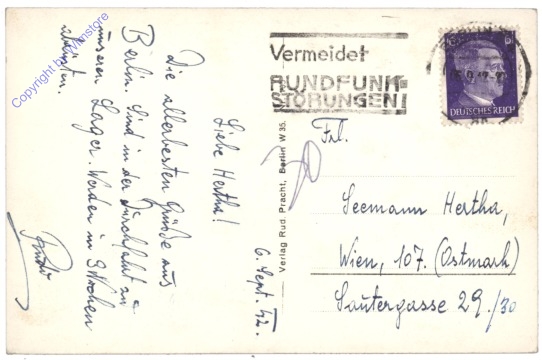 6. Sept. 42.
Liebe Hertha!
Die allerbesten Grüße aus
Berlin. Sind in der Durchfahrt zu
unseren Lager. Werden in 3 Wochen
Verlag Rud. Pracht, Berlin W 35.
Vermeidet
RUNDFUNK-
STÖRUNGEN!
BERLIN
6
DEUTSCHES REICH
Frl.
Seemann Hertha,
Wien, 107. (Ostmark)
Sautergasse 29./30
Copyright by Winstore